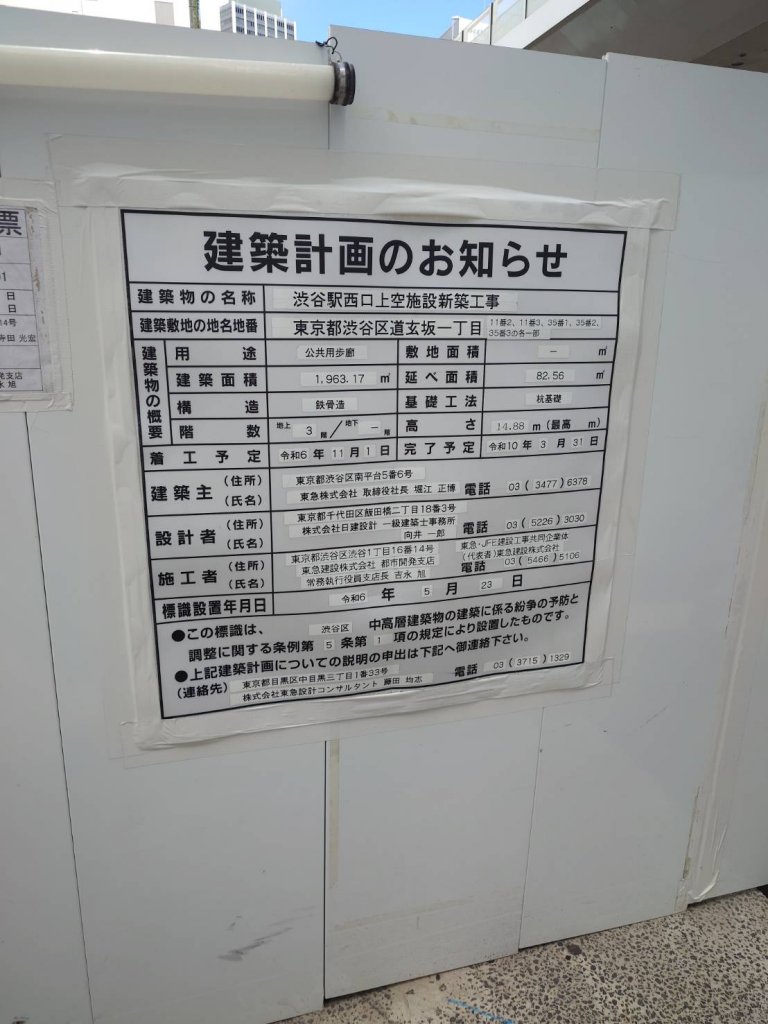 票
日
日
14号
寺田 光宏
建築計画のお知らせ
建築物の名称 渋谷駅西口上空施設新築工事
建築敷地の地名地番 東京都渋谷区道玄坂一丁目 11番2、11番3、35番1、35番2、
35番3の各一部
建築物の概要
用途 公共用歩廊 敷地面積 － ㎡
建築面積 1,963.17 ㎡ 延べ面積 82.56 ㎡
構造 鉄骨造 基礎工法 杭基礎
階数 地上 3 階／地下 － 階 高さ 14.88 m (最高 m)
着工予定 令和6年 11月 1日 完了予定 令和10年 3月 31日
建築主 (住所) 東京都渋谷区南平台5番6号
(氏名) 東急株式会社 取締役社長 堀江 正博 電話 03 ( 3477) 6378
設計者 (住所) 東京都千代田区飯田橋二丁目18番3号
(氏名) 株式会社日建設計 一級建築士事務所 電話 03 ( 5226) 3030
向井 一郎
施工者 (住所) 東京都渋谷区渋谷1丁目16番14号 東急・JFE建設工事共同企業体
(氏名) 東急建設株式会社 都市開発支店 (代表者)東急建設株式会社
常務執行役員支店長 吉永 旭 電話 03 ( 5466) 5106
標識設置年月日 令和6 年 5 月 23 日
●この標識は、 渋谷区 中高層建築物の建築に係る紛争の予防と
調整に関する条例第 5 条第 1 項の規定により設置したものです。
●上記建築計画についての説明の申出は下記へ御連絡下さい。
(連絡先) 東京都目黒区中目黒三丁目1番33号 電話 03 ( 3715) 1329
株式会社東急設計コンサルタント 藤田 均志